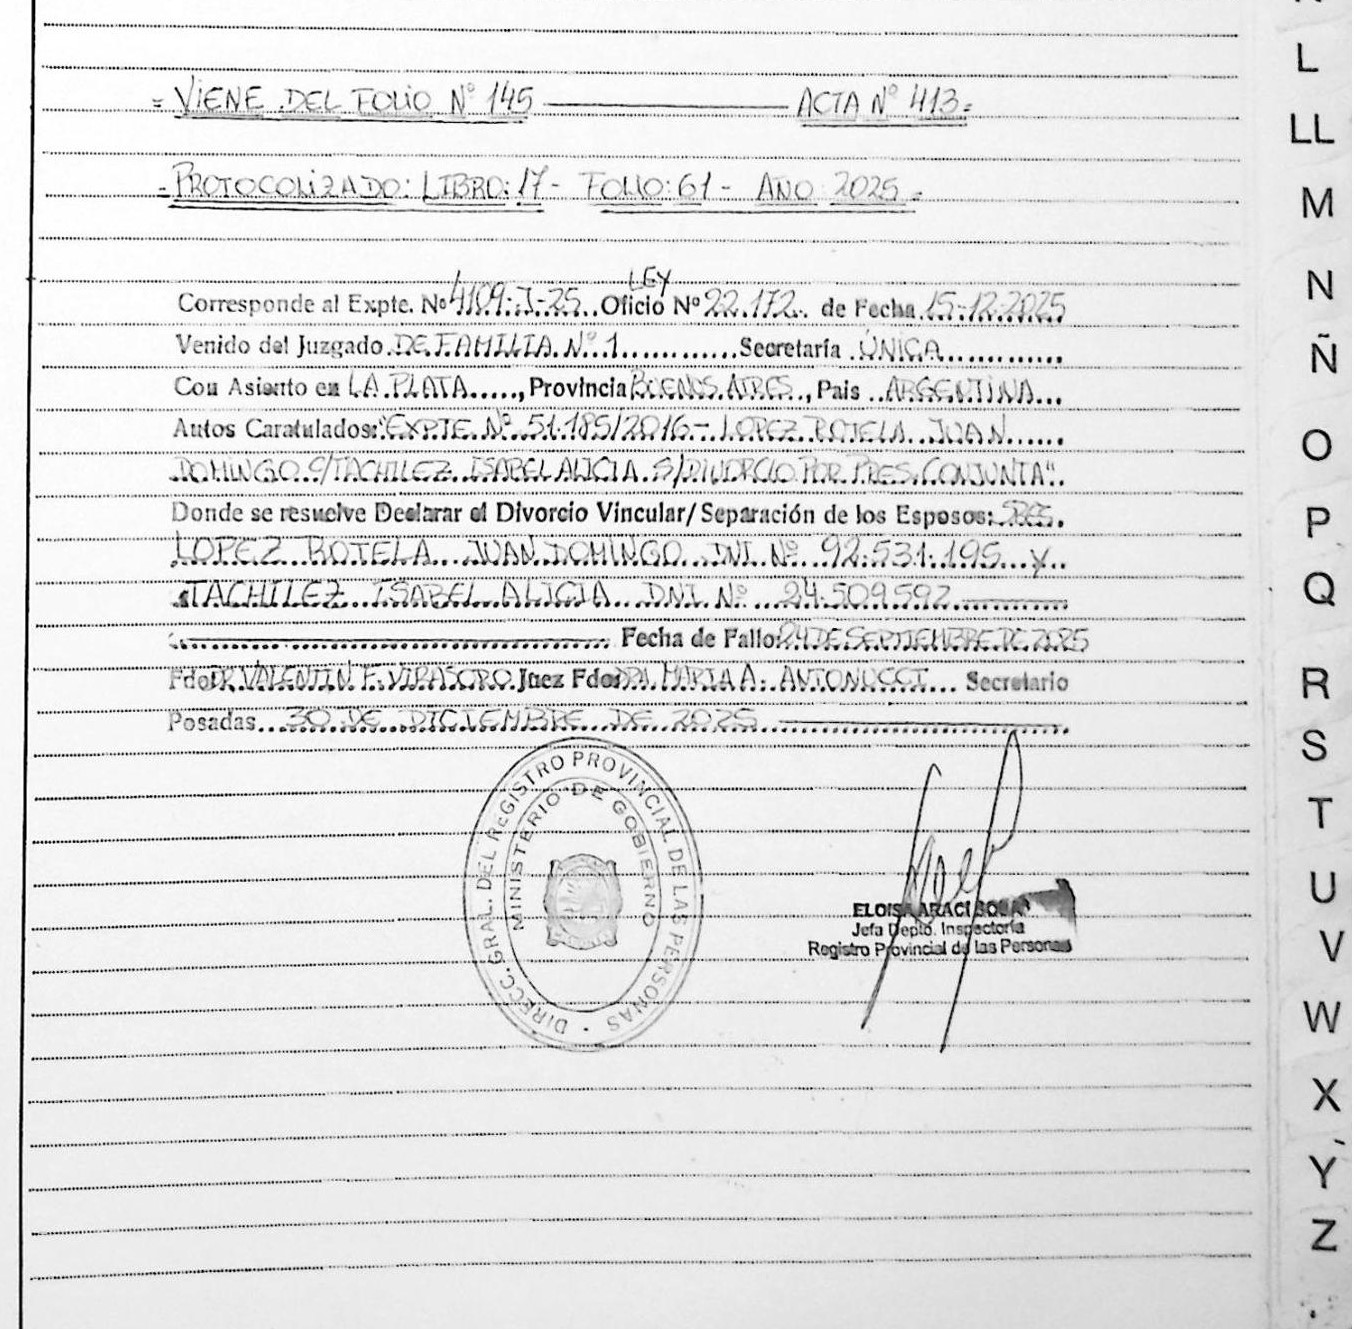 = VIENE DEL FOLIO Nº 145 ——— ACTA Nº 413=
- PROTOCOLIZADO: LIBRO: 17- FOLIO: 61- AÑO 2025-
LEY
Corresponde al Expte. Nº 4109-J-25. Oficio Nº 22.172. de Fecha 15-12-2025
Venido del Juzgado DE FAMILIA Nº 1 Secretaría ÚNICA
Con Asiento en LA PLATA, Provincia BUENOS AIRES, Pais ARGENTINA
Autos Caratulados: "EXPTE Nº 51.185/2016- LOPEZ ROTELA JUAN
DOMINGO C/TACHILEZ ISABEL ALICIA S/DIVORCIO POR PRES. CONJUNTA".
Donde se resuelve Declarar el Divorcio Vincular/Separación de los Esposos: SRES.
LOPEZ ROTELA JUAN DOMINGO DNI Nº 92.531.195 y
TACHILEZ ISABEL ALICIA DNI Nº 24.509.592
Fecha de Fallo: 24 DE SEPTIEMBRE DE 2025
Fdo: DR VALENTIN F. VIRASORO Juez Fdo: DRA. MARIA A. ANTONUCCI Secretario
Posadas 30 DE DICIEMBRE DE 2025
DIRECC. GRAL. DEL REGISTRO PROVINCIAL DE LAS PERSONAS
MINISTERIO DE GOBIERNO
ELOISA ARACI
Jefa Depto. Inspectoría
Registro Provincial de las Personas
L
LL
M
N
Ñ
O
P
Q
R
S
T
U
V
W
X
Y
Z